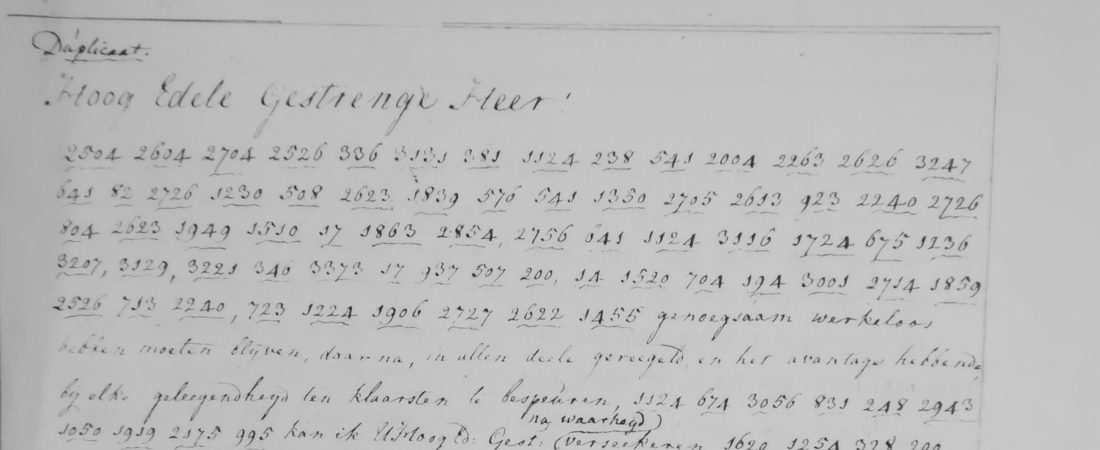 Duplicaat.
Hoog Edele Gestrenge Heer!
2504 2604 2704 2526 336 3131 381 1124 238 541 2004 2263 2626 3247
641 82 2726 1230 508 2623 1839 576 541 1350 2705 2613 923 2240 2726
804 2623 1949 1510 17 1863 2854, 2756 641 1124 3116 1724 675 1236
3207, 3129, 3221 346 3373 17 937 507 200, 14 1520 704 194 3001 2714 1859
2526 713 2240, 723 1224 1906 2727 2622 1455 genoegsaam werkeloos
hebben moeten blijven, daar na, in allen deele gereegeld, en het avantage hebbende,
by elke geleegendheyd ten klaarsten te bespeuren, 1124 674 3056 831 248 2943
na waarheyd)
1050 1919 2175 995 kan ik UHoog Ed: Gest: (verseekeren 1620 1254 328 200